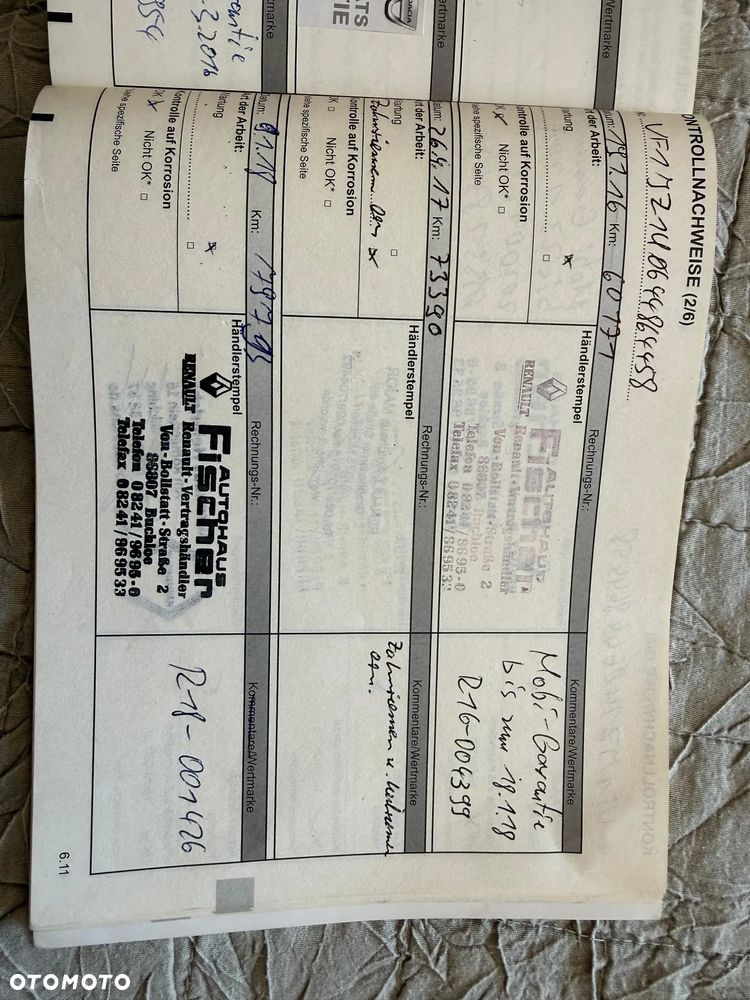 KONTROLLNACHWEISE (2/6)
Datum: 19.1.16 Km: 60171
Rechnungs-Nr.:
Kommentare/Wertmarke
Art der Arbeit:
Händlerstempel
Wartung
Kontrolle auf Korrosion
Nicht OK*
Siehe spezifische Seite
RENAULT
AUTOHAUS
Fischer
Renault-Vertragshändler
Von-Bollstatt-Straße 2
86807 Buchloe
Telefon 08241/9695-0
Telefax 08241/969533
Mobi-Garantie
bis zum 19.1.18
R16-004399
Km: 73390
Rechnungs-Nr.:
Kommentare/Wertmarke
Art der Arbeit:
Händlerstempel
Wartung
Kontrolle auf Korrosion
OK
Nicht OK*
Siehe spezifische Seite
Zahnriemen u. Keilriemen
ern.
Datum:
Km:
Rechnungs-Nr.:
Kommentare/Wertmarke
Art der Arbeit:
Händlerstempel
Wartung
Kontrolle auf Korrosion
OK
Nicht OK*
Siehe spezifische Seite
RENAULT
AUTOHAUS
Fischer
Renault-Vertragshändler
Von-Bollstatt-Straße 2
86807 Buchloe
Telefon 08241/9695-0
Telefax 08241/969533
R18-001426
6.11
OTOMOTO